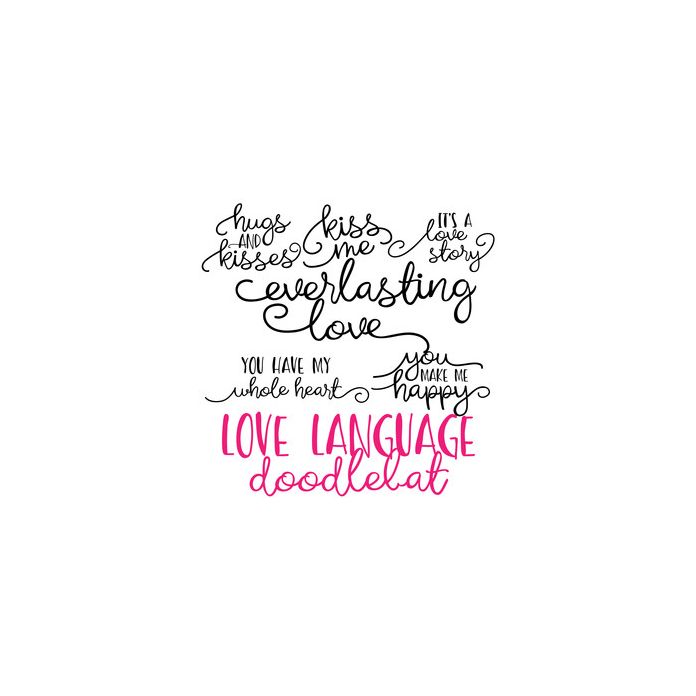 hugs
AND
kisses
kiss
me
IT'S A
love
story
everlasting
love
YOU HAVE MY
whole heart
you
MAKE ME
happy
LOVE LANGUAGE
doodlebat